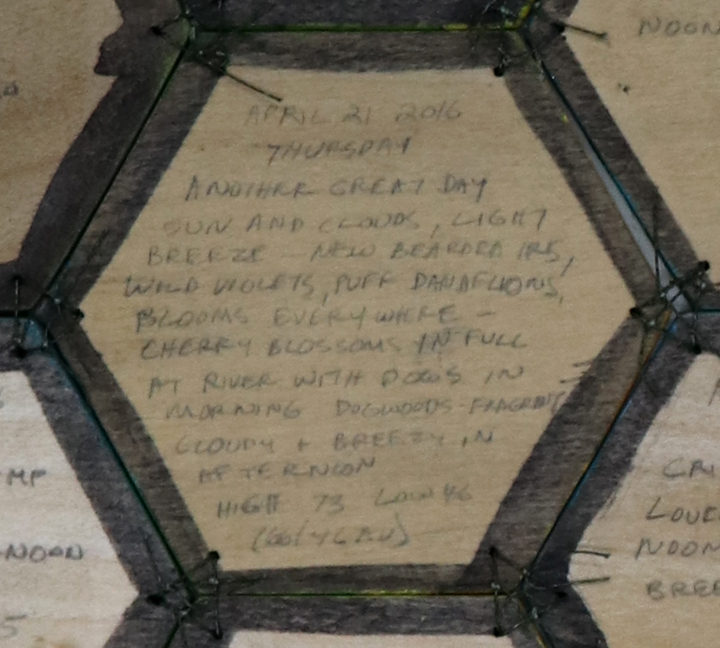 NOON
APRIL 21 2016
THURSDAY
ANOTHER GREAT DAY
SUN AND CLOUDS, LIGHT
BREEZE - NEW BEARDED IRIS,
WILD VIOLETS, PUFF DANDELIONS,
BLOOMS EVERYWHERE -
CHERRY BLOSSOMS IN FULL
AT RIVER WITH DOGS IN
MORNING DOGWOODS - FRAGRANT
CLOUDY + BREEZY IN
AFTERNOON
HIGH 73 LOW 46
MP
NOON
5
CRI
LOUD
NOON
BREE